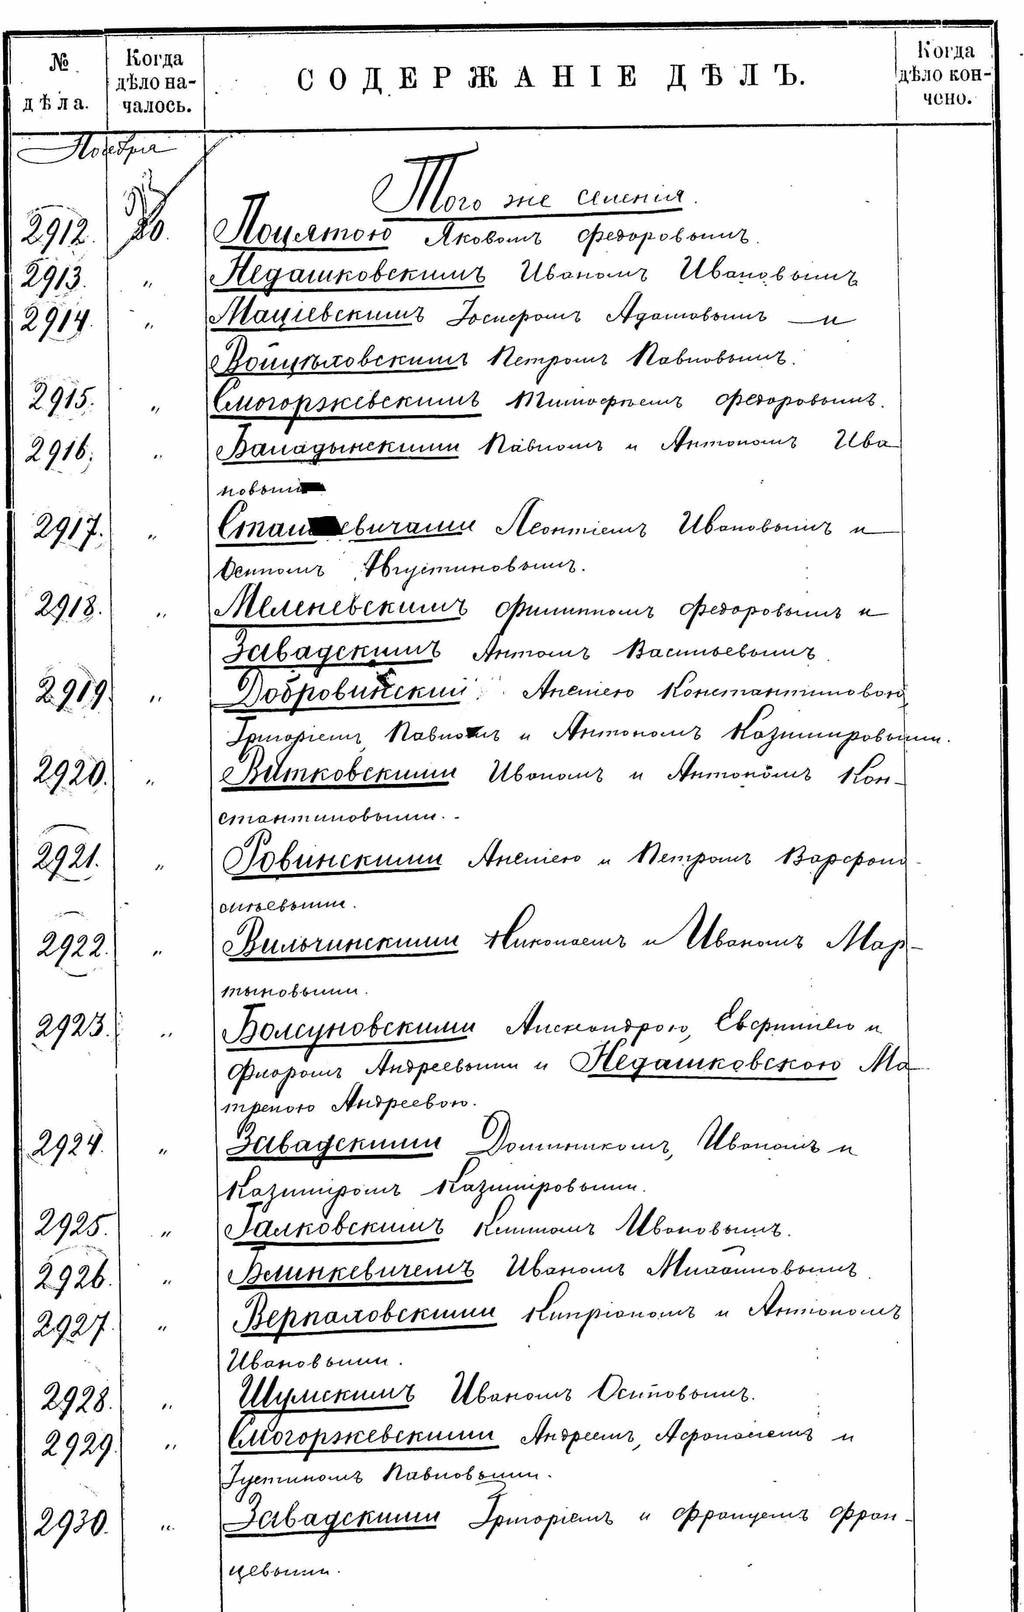 № дѣла.
Когда дѣло началось.
СОДЕРЖАНІЕ ДѢЛЪ.
Когда дѣло кончено.
Ноября
Того же селенія.
2912. 20. Поцятою Яковомъ Федоровымъ.
2913. „ Недашковскимъ Иваномъ Ивановымъ
2914. „ Маціевскимъ Іосифомъ Адамовымъ и
Войцѣховскимъ Петромъ Павловымъ.
2915. „ Смогоржевскимъ Тимофѣемъ Федоровымъ.
2916. „ Баладынскими Павломъ и Антономъ Ива
новыми
2917. „ Леонтіемъ Ивановымъ и
Осипомъ Августиновымъ.
2918. „ Меленевскимъ Филиппомъ Федоровымъ и
Завадскимъ Антономъ Васильевымъ
2919. „ Добровинскій Аненіею Константиновою,
Григоріемъ, Павломъ и Антономъ Казиміровыми.
2920. „ Витковскими Иваномъ и Антономъ Кон-
стантиновыми.
2921. „ Ровинскими Аненіею и Петромъ Варфоло-
омѣевыми.
2922. „ Вильчинскими Николаемъ и Иваномъ Мар-
тыновыми.
2923. „ Болсуновскими Александрою, Евфиміею и
Флоромъ Андреевыми и Недашковскою Ма-
треною Андреевою.
2924. „ Завадскими Доминикомъ, Иваномъ и
Казиміромъ Казиміровыми.
2925. „ Галковскимъ Климомъ Ивановымъ.
2926. „ Велинкевичемъ Иваномъ Михайловымъ.
2927. „ Верпаховскими Кипріаномъ и Антономъ
Ивановыми.
2928. „ Шумскимъ Иваномъ Осиповымъ.
2929. „ Смогоржевскими Андреемъ, Афонасіемъ и
Іустиномъ Павловыми.
2930. „ Завадскими Григоріемъ и Францемъ Фран-
цевыми.